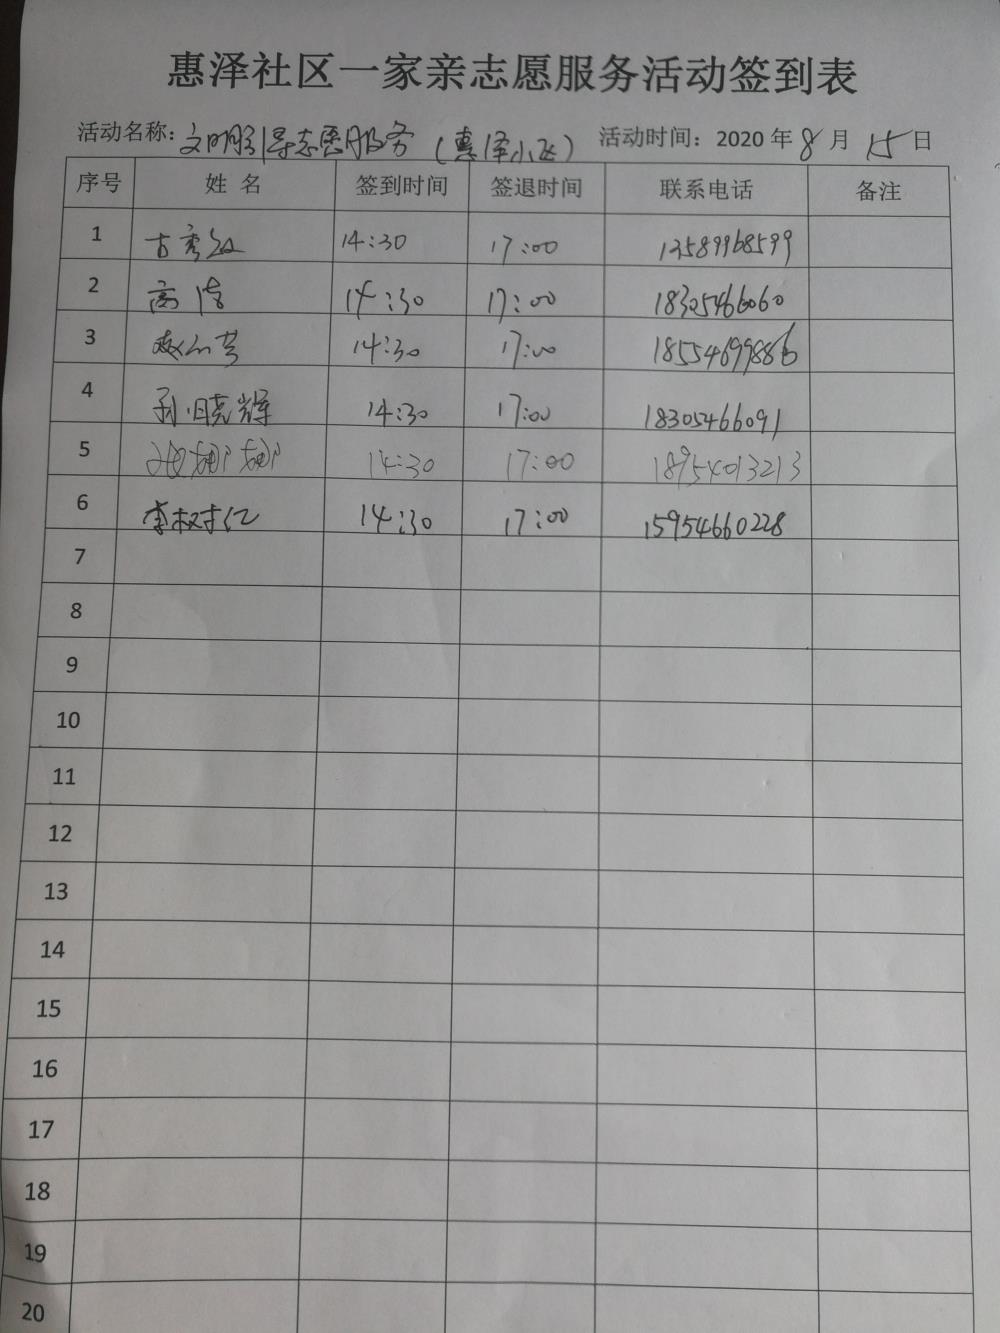 惠泽社区一家亲志愿服务活动签到表
活动名称：文明引导志愿服务（惠泽小区） 活动时间：2020年8月15日
序号 姓名 签到时间 签退时间 联系电话 备注
1 14:30 17:00 13589968599
2 高洁 14:30 17:00 18305466060
3 14:30 17:00 18554699886
4 孙晓辉 14:30 17:00 18305466091
5 14:30 17:00 18954013213
6 李树仁 14:30 17:00 15954660228
7
8
9
10
11
12
13
14
15
16
17
18
19
20